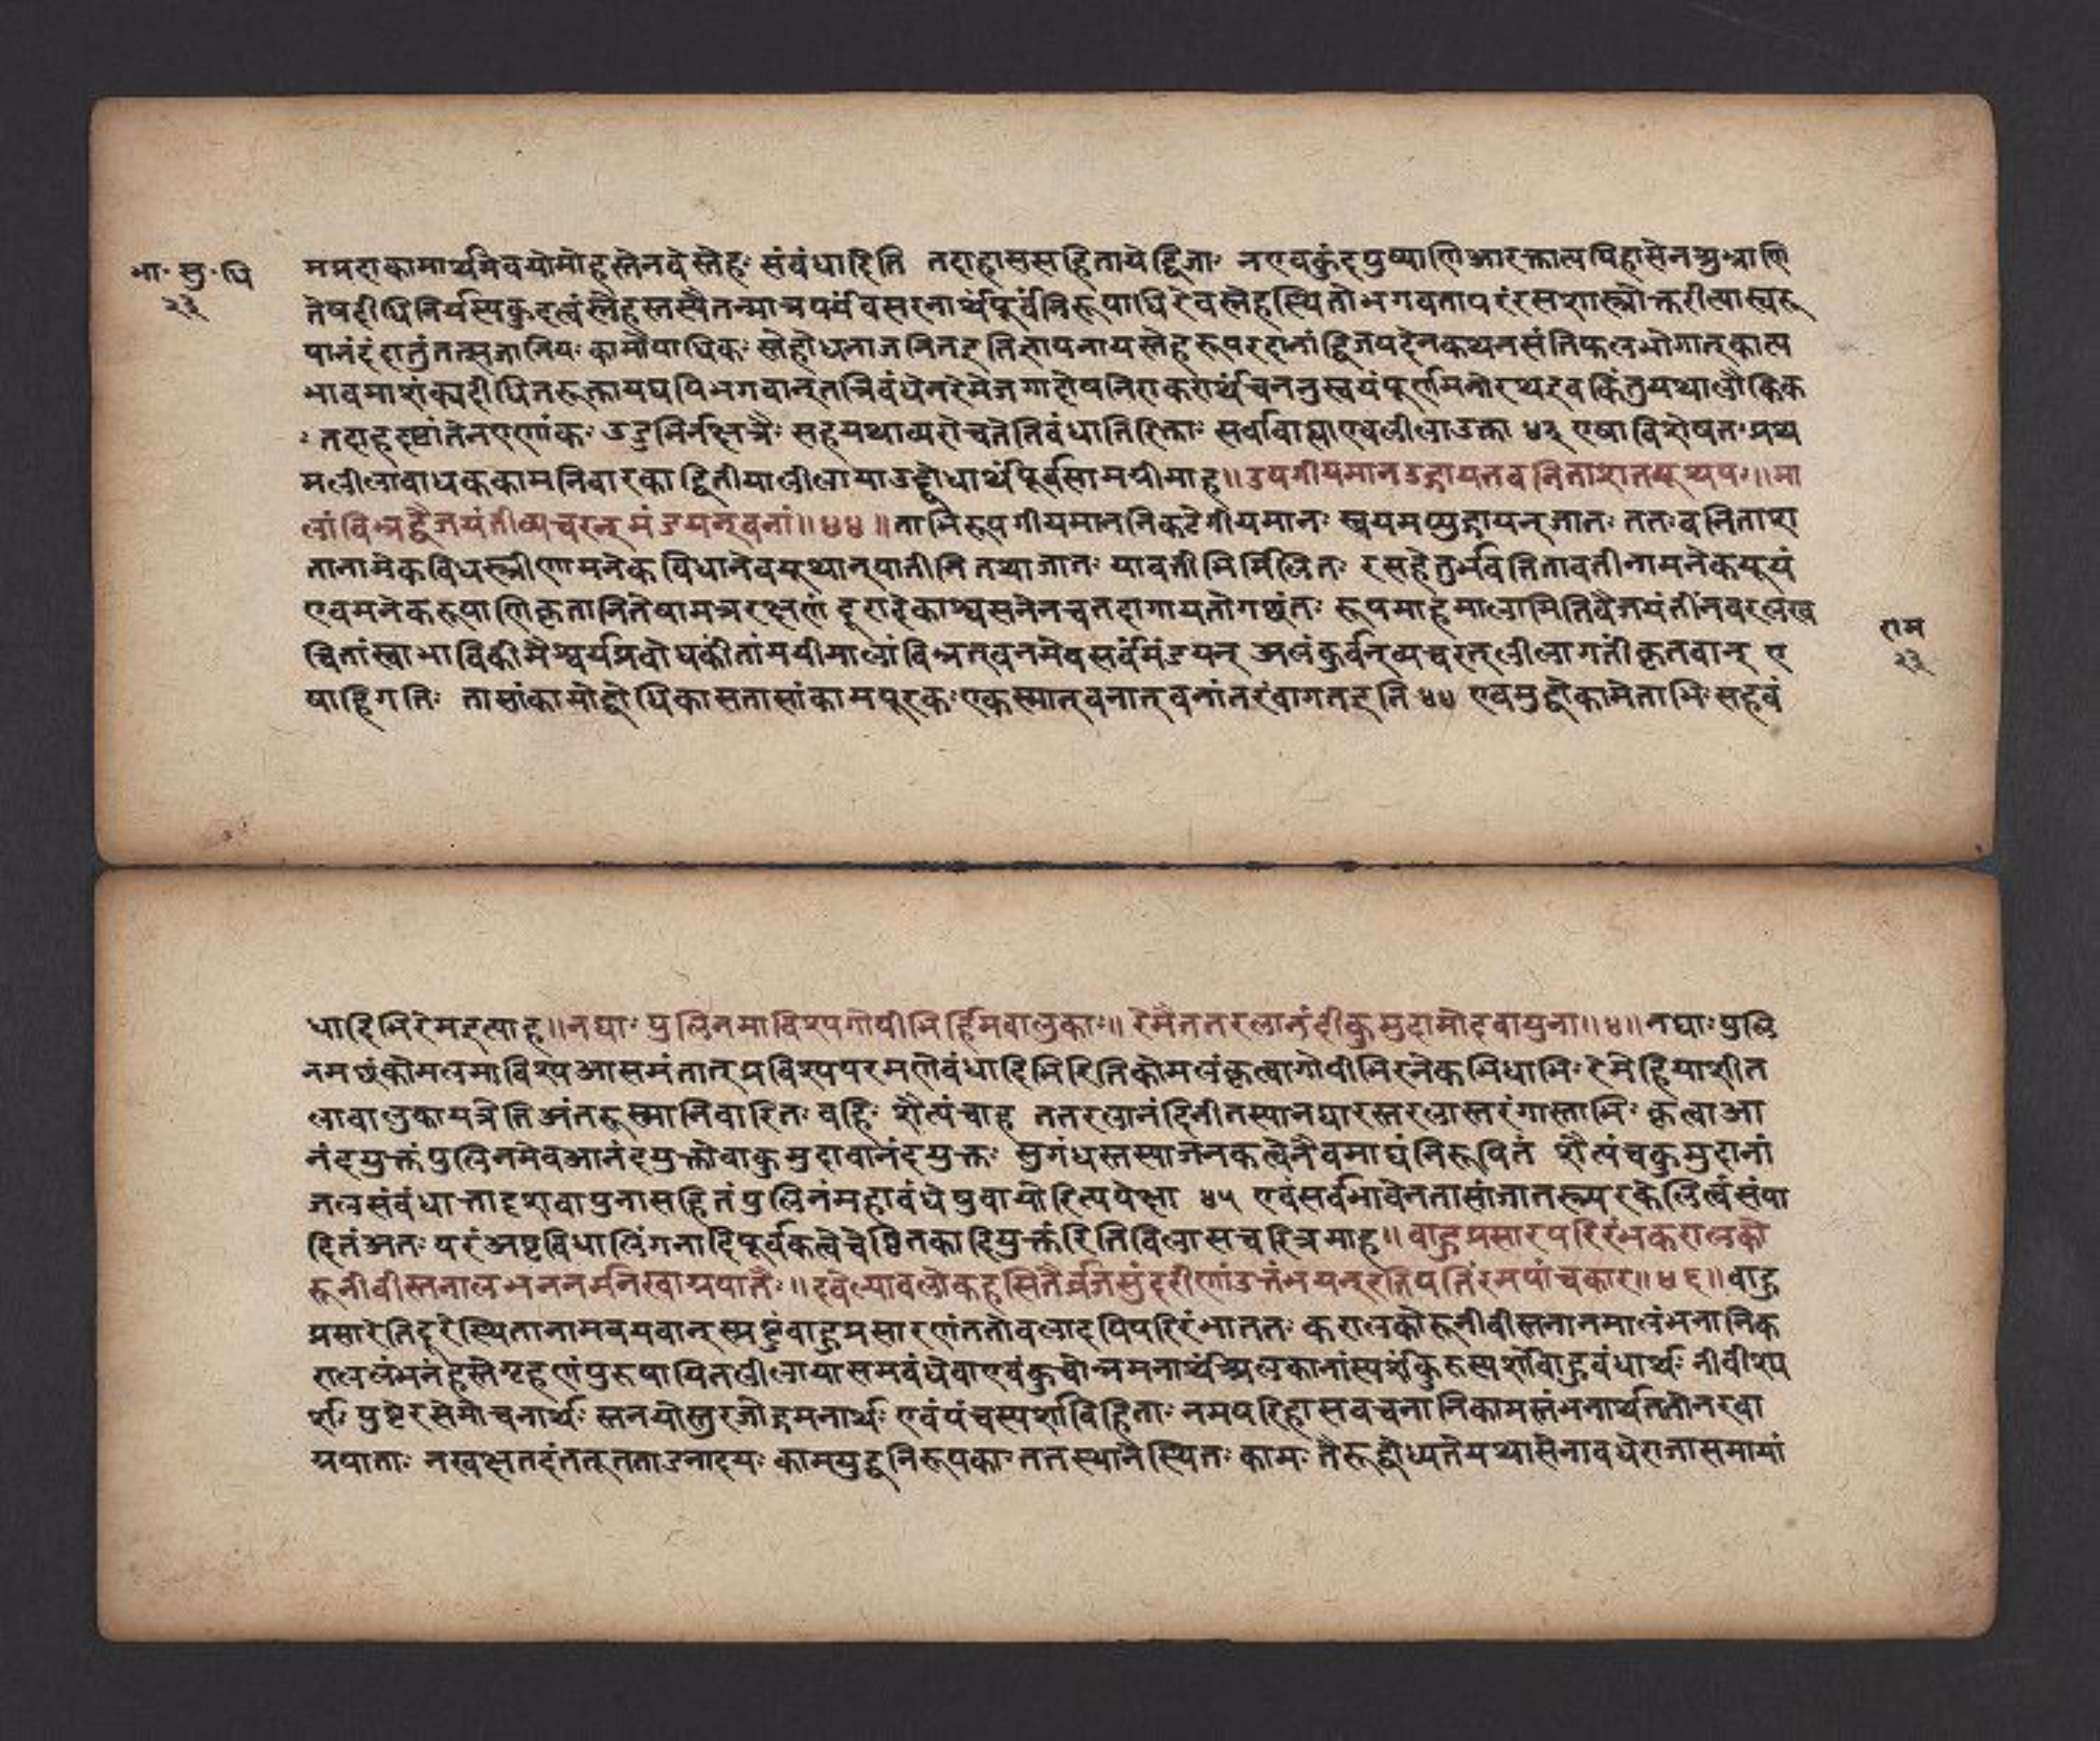 भा॰ सु॰ धि
२३
ममदाकामार्थमेवयोमोहस्तेनवेस्नेहः संबंधादिति तदाहाससहितायेद्विजाः नएवकुंदपुष्पाणिआरक्तान्यपिहासेनशुभ्राणि
तेषदीधितिर्यस्य स्नेहस्तस्यैतन्मात्रपर्यवसरनार्थंपूर्वंनिरूपाधिरेवस्नेहस्थितोभगवतापरंरसशास्त्रोक्तरीत्यास्वरू
पानंदंदातुं कामौपाधिकः स्नेहोधनाजनितइतिज्ञापनायस्नेहरूपरदानांद्विजपदेनकथनसंतिफलभोगात्काल्प
भावमाशंक्यदीधितरुक्तायद्यपिभगवान्तन्निबंधेनरेमेजगाद्दोषनिराकरार्थंचननुस्वयंपूर्णमनोरथइवकिंतुयथालौकिक
ः तदाहदृष्टांतेनएणांकः उडुभिर्नक्षत्रैः सहयथाव्यरोचतेतिबंधातिरिक्ताः सर्वाबाह्याएवलीलाउक्ता ४३ एषाविशेषतःप्रथ
मलीलाबाधककामनिवारकाद्वितीयालीलायाउद्बोधार्थंपूर्वसामग्रीमाह॥उपगीयमानउद्गायनवनिताशतयूथपः॥मा
लांबिभ्रद्वैजयंतींव्यचरन्मंडयन्वनां॥४४॥ताभिरुपगीयमाननिकटेगीयमानः स्वयमप्युद्गायन्जातः ततःवनिताश
तानामेकविधस्त्रीणामनेकविधानेवयूथान्पातीनितथाजातः यावतीभिर्मिलितः रसहेतुर्भवतितावतीनामनेकयूथं
एवमनेकरूपाणिकृतानितेषामत्ररक्षणं दूरादेकाश्वसनेनचतदागायतोगछंतः रूपमाहमालामितिवैजयंतींनवरत्नख
चितांस्वाभाविकीमैश्वर्यप्रबोधकींतांमयीमालांबिभ्रत्वनमेवसर्वंमंडयन् अलंकुर्वन्व्यचरत्लीलागतींकृतवान् ए
षाहिगतिः तासांकामोद्बोधिकासतासांकामपूरकःएकस्मात्वनात्वनांतरंवागतइति ४४ एवमुद्बोकामेताभिःसहबं
राम
२३
धादिभिरेमइत्याह॥नद्याः पुलिनमाविश्यगोपीभिर्हिमवालुकाः॥ रेमेतत्तरलानंदीकुमुदामोदवायुना॥४॥नद्याःपुलि
नमछंकोमलमाविश्यआसमंतात्प्रविश्यपरमणेबंधादिभिरितिकोमलंकृत्वागोपीभिरनेकभिधाभिः रेमेहियाशीत
लावालुकायत्रेतिअंतरूस्मानिवारितः बहिः शैत्यंचाह तत्तरलानंदिनीतस्यानद्यारस्तरलास्तरंगास्ताभिः कृत्वाआ
नंदयुक्तंपुलिनमेवआनंदयुक्तोवाकुमुदावानंदयुक्तः सुगंधस्तस्याजनकत्वेनैवमाद्यंनिरूपितं शैत्यंचकुमुदानां
जलसंबंधात्तादृशवायुनासहितंपुलिनंमहाबंधेषुवायोरित्यपेक्षा ४५ एवंसर्वभावेनतासांजातस्त्मरकेलित्वंसंपा
दितंअतः परंअष्टविधालिंगनादिपूर्वकत्वेचेष्टितकादियुक्तंरितिविलासचरित्रमाह॥ बाहुप्रसारपरिरंभकरालको
रूनीवीस्तनालभननर्मनखाग्रपातैः॥क्ष्वेल्यावलोकहसितैर्व्रजसुंदरीणांउत्तंभयन्रतिपतिंरमयांचकार॥४६॥बाहु
प्रसारेतिदूरेस्थितानामवयवान्स्प्रष्टुंबाहुप्रसारणंततोबलादपिपरिरंभाततः करालकोरूनीवीस्तनानमालंभनानिक
रालंलंभनंहस्तेगृहणंपुरुषायितलीलायासमबंधेवाएवंकुचोन्नमनार्थंअलकानांस्पर्शः बाहुबंधार्थः नीवीस्प
र्शः पुष्टेरसेमोचनार्थः स्तनयोस्तुरजोद्गमनार्थः एवंपंचस्पर्शाविहिताः नमपरिहासवचनानिकामस्तंभनार्थततोनखा
ग्रपाताः नखक्षतदंतत्तृतताडनादयः कामयुद्धनिरूपकाः ततस्थानेस्थितः कामः तैरूद्बोध्यतेयथासेनावधेराजासमायां